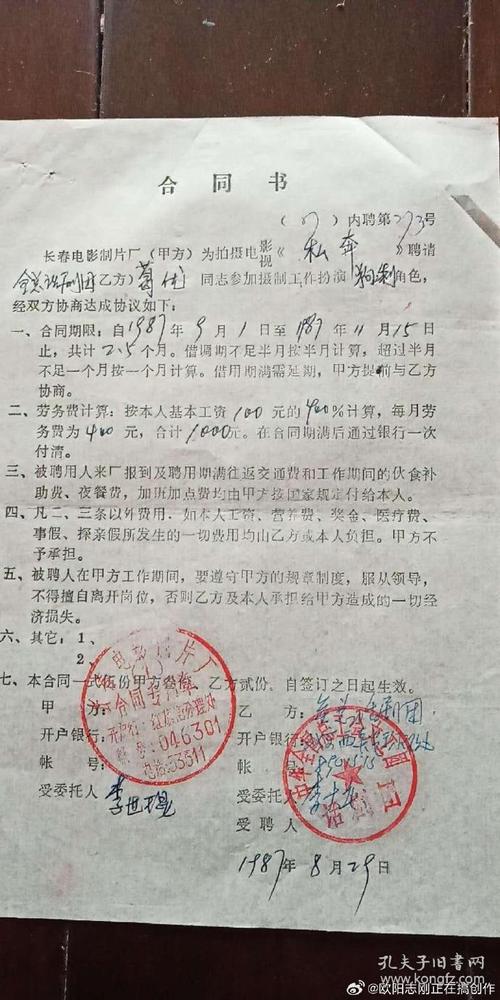 合同书
(87)内聘第273号
长春电影制片厂(甲方)为拍摄电影视《私奔》聘请
全总话剧团(乙方)葛优同志参加摄制工作扮演 角色,
经双方协商达成协议如下:
一、合同期限:自1987年9月1日至1987年11月15日
止,共计2.5个月。借调期不足半月按半月计算,超过半月
不足一个月按一个月计算。借用期满需延期,甲方提前与乙方
协商。
二、劳务费计算:按本人基本工资100元的400%计算,每月劳
务费为400元,合计1000元。在合同期满后通过银行一次
付清。
三、被聘用人来厂报到及聘用期满往返交通费和工作期间的伙食补
助费、夜餐费,加班加点费均由甲方按国家规定付给本人。
四、凡二、三条以外费用,如本人工资、营养费、奖金、医疗费、
事假、探亲假所发生的一切费用均由乙方或本人负担。甲方不
予承担。
五、被聘人在甲方工作期间,要遵守甲方的规章制度,服从领导,
不得擅自离开岗位,否则乙方及本人承担给甲方造成的一切经
济损失。
六、其它:1、
2、
七、本合同一式伍份甲方叁份,乙方贰份,自签订之日起生效。
甲方:
乙方:全总话剧团
开户银行:
开户银行:
帐号:
帐号:
受委托人
受委托人
受聘人
1987年8月29日
电影制片厂
合同专用章
开户行:红旗街办理处
帐号:046301
电话:53311
话剧团
孔夫子旧书网
@欧阳志刚正在搞创作